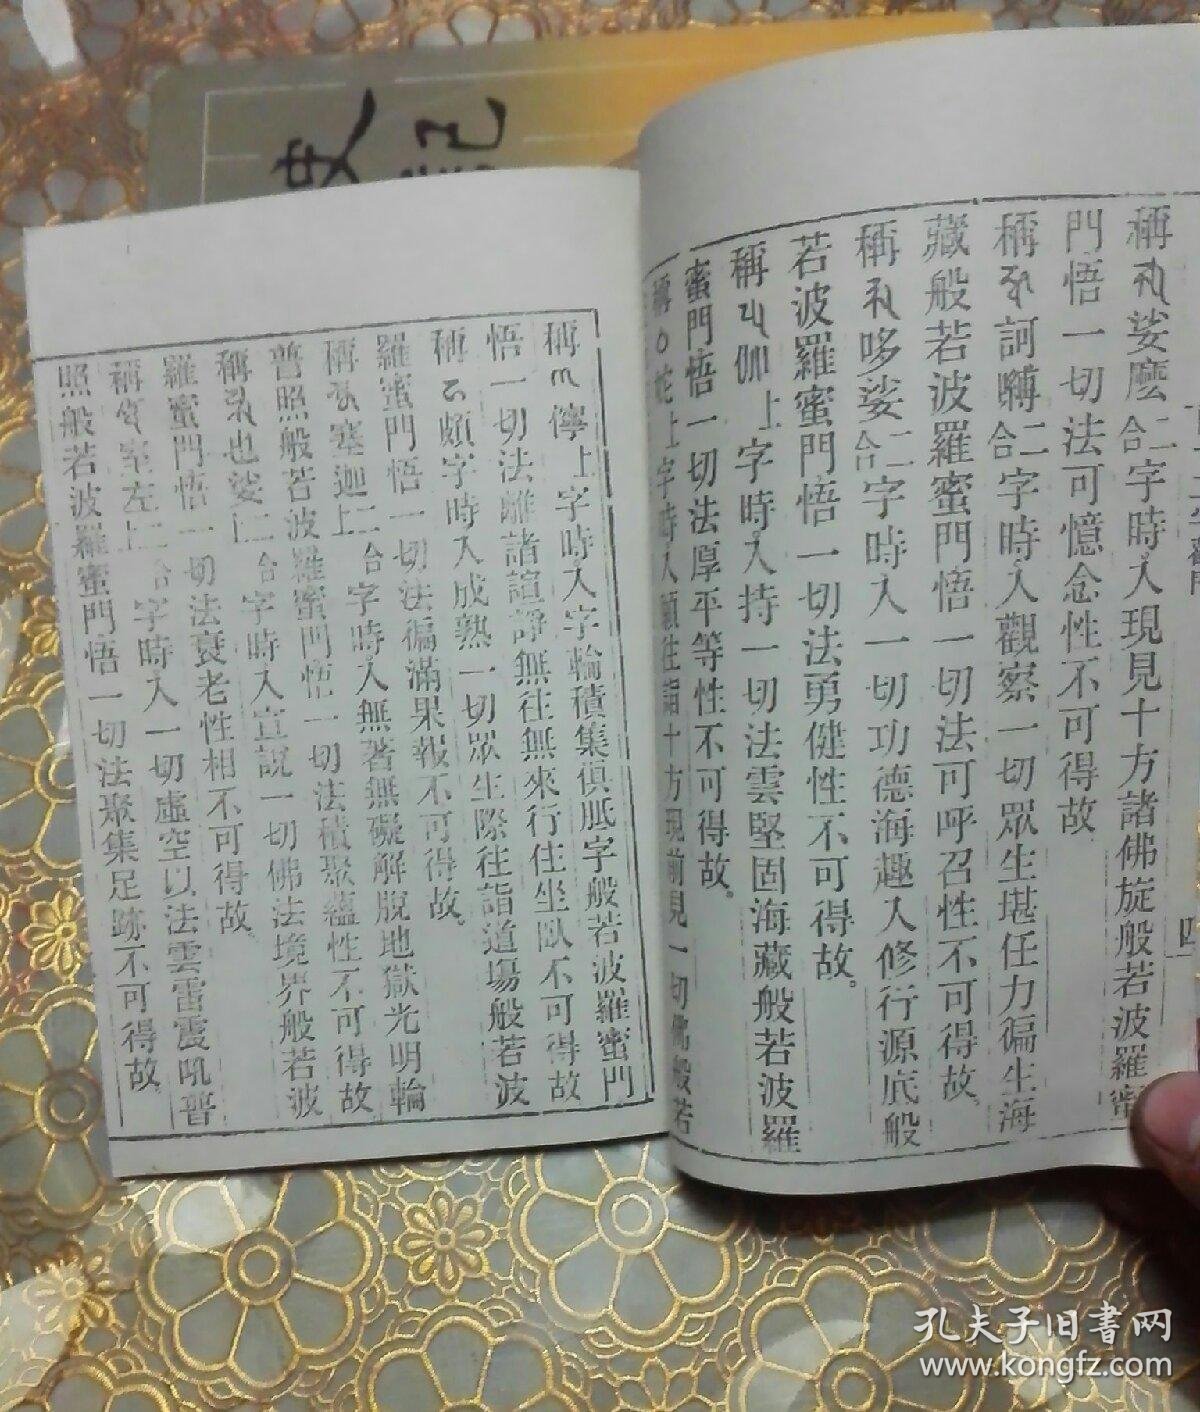 稱娑麼二合字時入現見十方諸佛旋般若波羅蜜
門悟一切法可憶念性不可得故
稱訶嚩二合字時入觀察一切眾生堪任力徧生海
藏般若波羅蜜門悟一切法可呼召性不可得故
稱哆娑二合字時入一切功德海趣入修行源底般
若波羅蜜門悟一切法勇健性不可得故。
稱伽上字時入持一切法雲堅固海藏般若波羅
蜜門悟一切法厚平等性不可得故。
稱上字時入願往詣十方現前見一切佛般若
稱儜上字時入字輪積集俱胝字般若波羅蜜門
悟一切法離諸諠諍無往無來行住坐臥不可得故
稱頗字時入成熟一切眾生際往詣道場般若波
羅蜜門悟一切法徧滿果報不可得故。
稱塞迦上二合字時入無著無礙解脫地獄光明輪
普照般若波羅蜜門悟一切法積聚蘊性不可得故
稱也娑上二合字時入宣說一切佛法境界般若波
羅蜜門悟一切法衰老性相不可得故。
稱室左上二合字時入一切虛空以法雲雷震吼普
照般若波羅蜜門悟一切法聚集足跡不可得故
四
孔夫子旧書网
www.kongfz.com